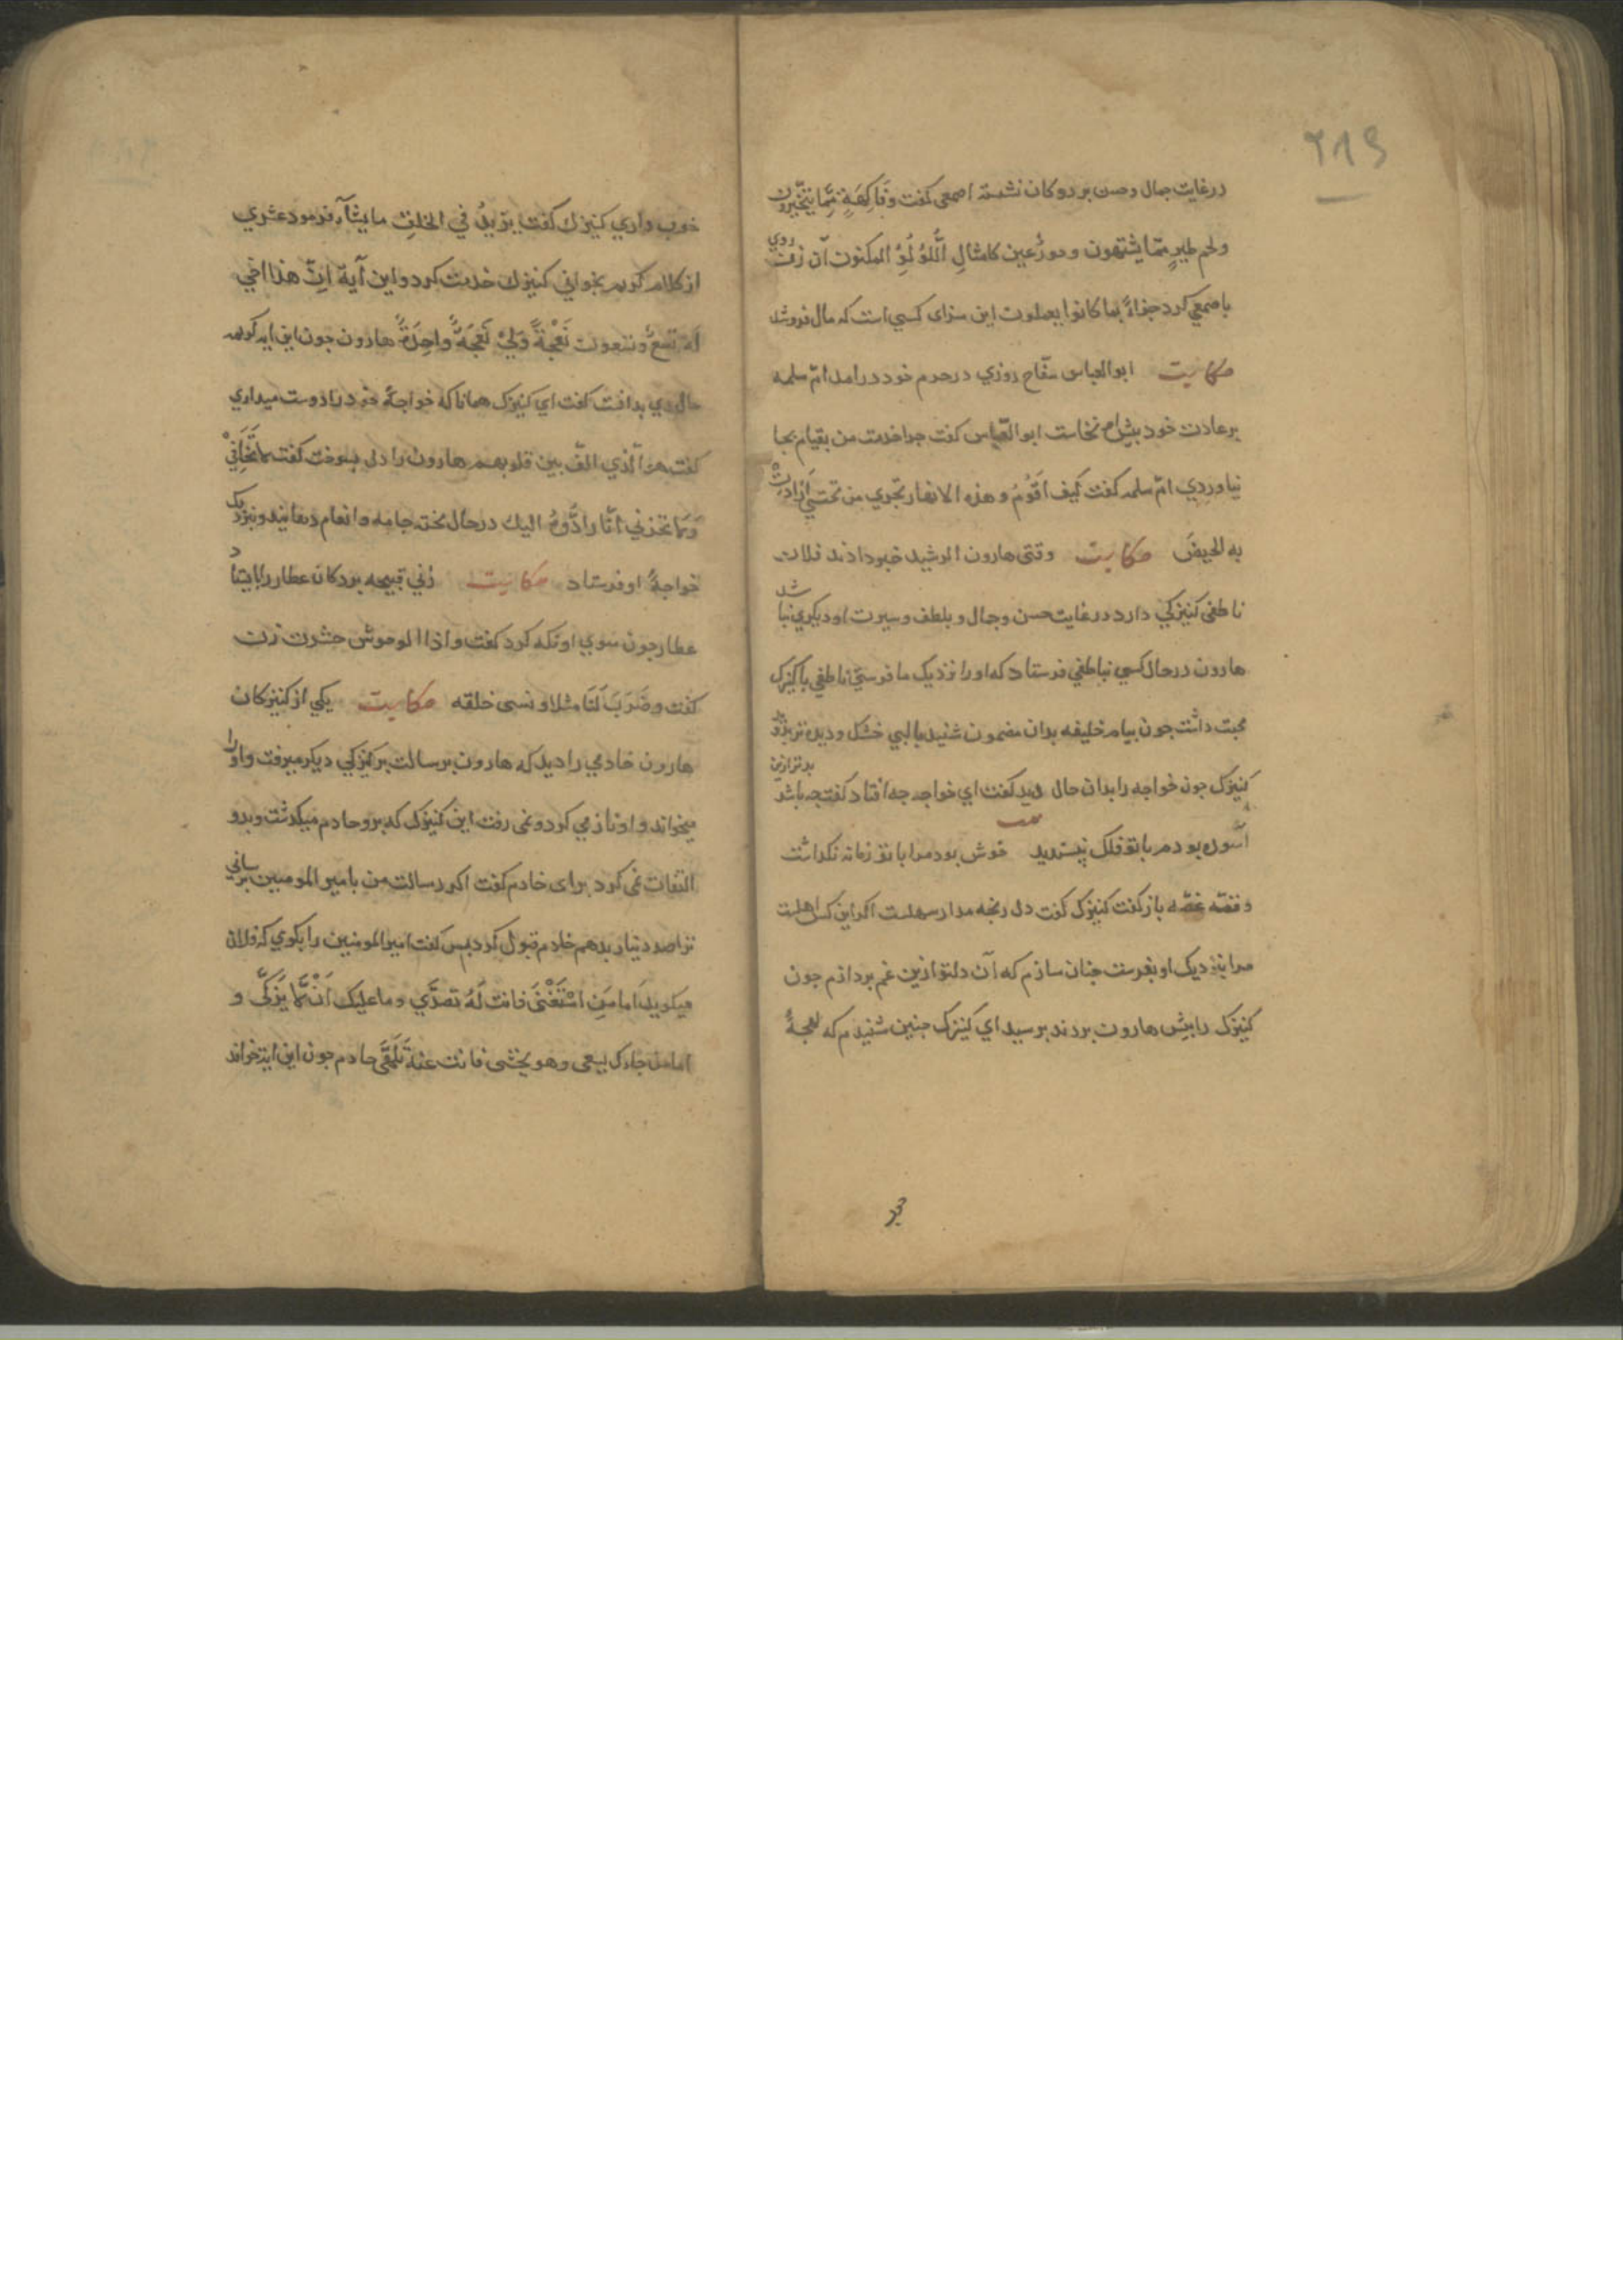 ۲۱۹
درغایت جمال وحسن بر دوکان نشسته اصمعی کفت وَفَاکِهَةٍ مِمَّا یَتَخَیَّرون
ولحم طیرٍ ممّا یشتهون وحورٌعین کامثالِ اللُّؤلُؤِ المکنون آن زن روی
باصمعی کرد جزآءً بما کانوا یعملون این سزای کسی است که مال فروشد
حکایت ابوالعباس سفّاح روزی درحرم خود درامد امّ سلمه
برعادت خود بیش ام نخاست ابوالعباس کفت جرا خدمت من بقیام بجا
نیاوردی امّ سلمه کفت کَیف اَقُومُ وهذه الانهار تجری من تحتی اَرَادَتْ
به الحیضَ حکایت وقتی هارون الرشید خبر دادند فلان
ناطفی کنیزکی دارد درغایت حسن وجمال و بلطف وسیرت او دیکری نباشد
هارون درحال کسی بناطفی فرستاد که اورا نزدیک ما فرستی ناطفی باکنیزک
محبت داشت جون بیام خلیفه بدان مضمون شنید بالبی خشک و دیده تر نزد
کنیزک جون خواجه را بدان حال دید کفت ای خواجه جه افتاد کفت جه باشد بدتر ازین
آسوده بودم باتو فلک نبسندید خوش بود مرا باتو زمانه نکذاشت
وقصّه غصّه بازکفت کنیزک کفت دل رنجه مدار سهلست اکر این کس اهلست
مرا بنزدیک او بفرست جنان سازم که آن دلتو ازین غم بردازم جون
کنیزک را بیش هارون بردند برسید ای کنیزک جنین شنیدم که لهجهٔ
خوب داری کنیزک کفت یَزیدُ فی الخلقِ مایشآء فرمود عشری
ازکلام کریم بخوانی کنیزک خدمت کرد و این آیة اِنّ هذا اخی
له تسعٌ وتسعون نَعْجَةً وَلِیَ نَعْجَةٌ واحِدَةٌ هارون جون این ایه کریمه
حال وی بدانست کفت ای کنیزک همانا که خواجهٔ خود را دوست میداری
کفت هو الّذی الّف بین قلوبهم هارون را دل بسوخت کفت لا تَخَافِی
وَلا تحزنی انّا رادُّوهُ الیك درحال تخته جامه وانعام دهانید ونزدیک
خواجهٔ او فرستاد حکایت زنی قبیحه بردکان عطار را بایستاد
عطار جون سوی او نکه کرد کفت واذا الوحوش حشرت زن
کفت وضَرَبَ لَنَا مثلا ونسی خلقه حکایت یکی از کنیزکان
هارون خادمی را دید که هارون برسالت بر کنیزکی دیکر میرفت واورا
میخواند و او ناز می کرد و نمی رفت این کنیزک که برو خادم میکدشت وبدو
التفات نمی کرد برای خادم کفت اکر رسالت من بامیر المومنین برسانی
ترا صد دینار بدهم خادم قبول کرد بس کفت امیر المومنین را بکوی که فلان
میکوید اَما مَنِ اسْتَغْنَی فانت لَهُ تصدَّی وما علیك اَنْ لا یَزَّکّی و
امامن جاءك یسعی وهو یخشی فانت عنهُ تَلَهَّی خادم جون این ایة خواند